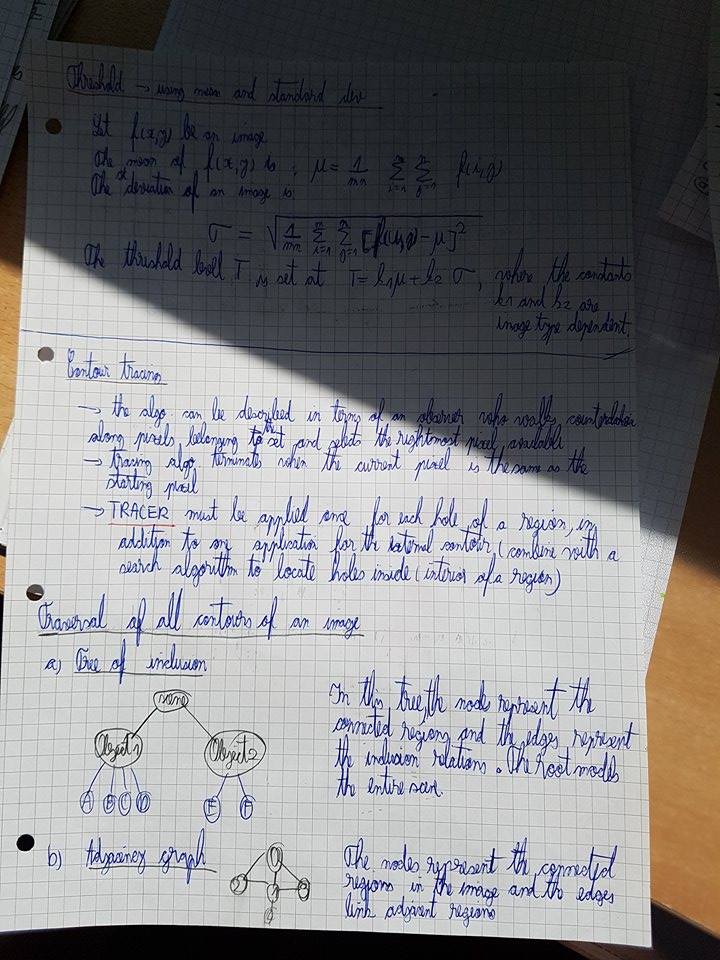 Threshold → using mean and standard dev
Let f(x,y) be an image
The mean of f(x,y) is: μ = 1/mn Σ Σ f(i,j)
The st deviation of an image is:
σ = √ 1/mn Σ Σ [f(i,j) - μ]²
The threshold level T is set at T = k1μ + k2 σ, where the constants
k1 and k2 are
image type dependent.
Contour tracing
→ the algo. can be described in terms of an observer who walks
along pixels, belonging to the set and selects the rightmost pixel available
→ tracing algo. terminates when the current pixel is the same as the
starting pixel
→ TRACER must be applied once for each hole of a region, in
addition to one application for the external contour (combine with a
search algorithm to locate holes inside (interior of a region)
Traversal of all contours of an image
a) Tree of inclusion
scene
Object 1
Object 2
A B C D
E F
In this tree, the nodes represent the
connected regions and the edges represent
the inclusion relations. The root models
the entire scene.
b) Adjacency graph
The nodes represent the connected
regions in the image and the edges
link adjacent regions